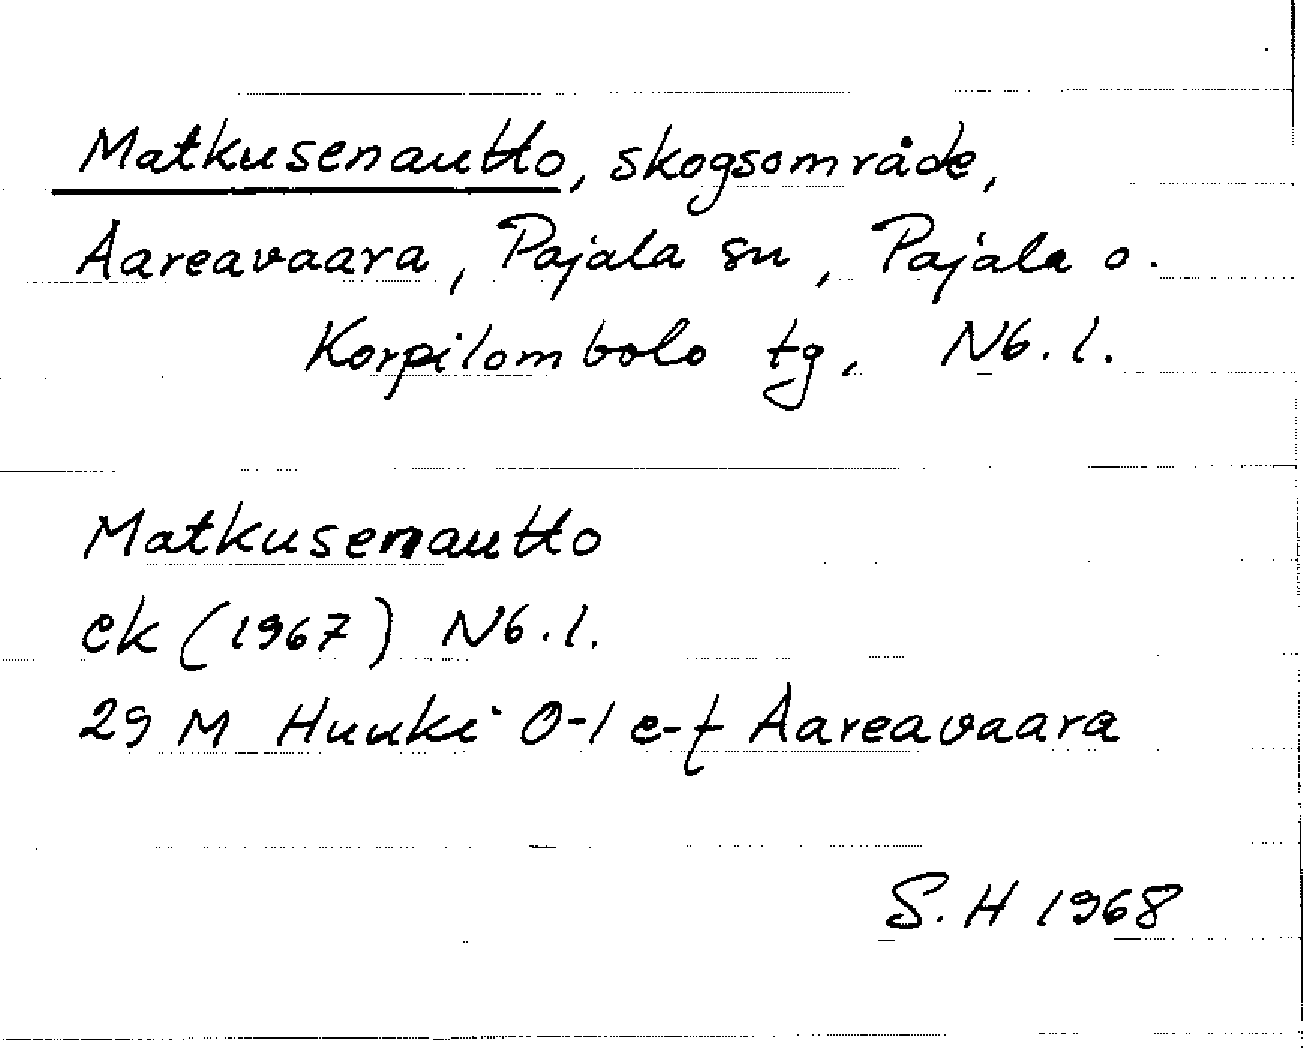 Matkusenautto, skogsområde,
Aareavaara, Pajala sn, Pajala o.
Korpilombolo tg, Nb. l.
Matkusenautto
ek (1967) Nb. l.
29 M Huuki O-l e-f Aareavaara
S. H 1968